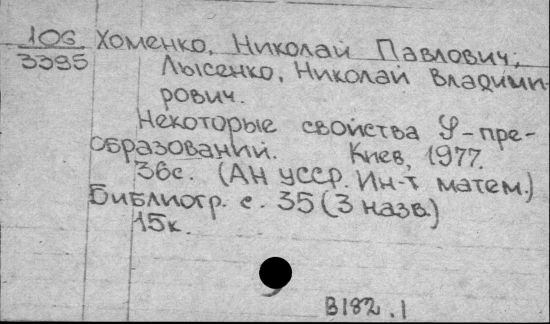 106 Хоменко, Николай Павлович;
3395 Лысенко, Николай Владими-
рович.
Некоторые свойства φ-пре-
образований. Киев, 1977.
36с. (АН УССР. Ин-т матем.)
Библиогр. с. 35 (3 назв.)
15к.
В182.1